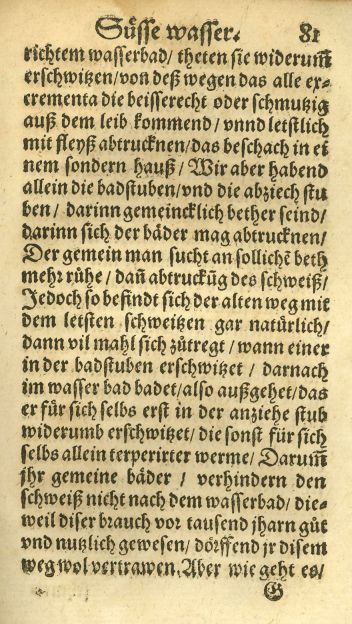 Süsse wasser. 81
richtem wasserbad/ theten sie widerum̄
erschwitzen/von deß wegen das alle ex-
crementa die beisserecht oder schmutzig
auß dem leib kommend/ vnnd letstlich
mit fleyß abtrucknen/das beschach in ei
nem sondern hauß/ Wir aber habend
allein die badstuben/vnd die abziech stu
ben/ darinn gemeincklich bether seind/
darinn sich der bäder mag abtrucknen/
Der gemein man sucht an sollichē beth
mehr rühe/ dañ abtruckūg des schweiß/
Jedoch so befindt sich der alten weg mit
dem letsten schweitzen gar natürlich/
dann vil mahl sich zůtregt/ wann einer
in der badstuben erschwitzet / darnach
im wasser bad badet/also außgehet/das
er für sich selbs erst in der anziehe stub
widerumb erschwitzet/die sonst für sich
selbs allein terperirter werme/ Darum̄
jhr gemeine bäder / verhindern den
schweiß nicht nach dem wasserbad/ die-
weil diser brauch vor tausend jharn gůt
vnd nutzlich gewesen/ dörffend jr disem
weg wol vertrawen. Aber wie geht es/
G